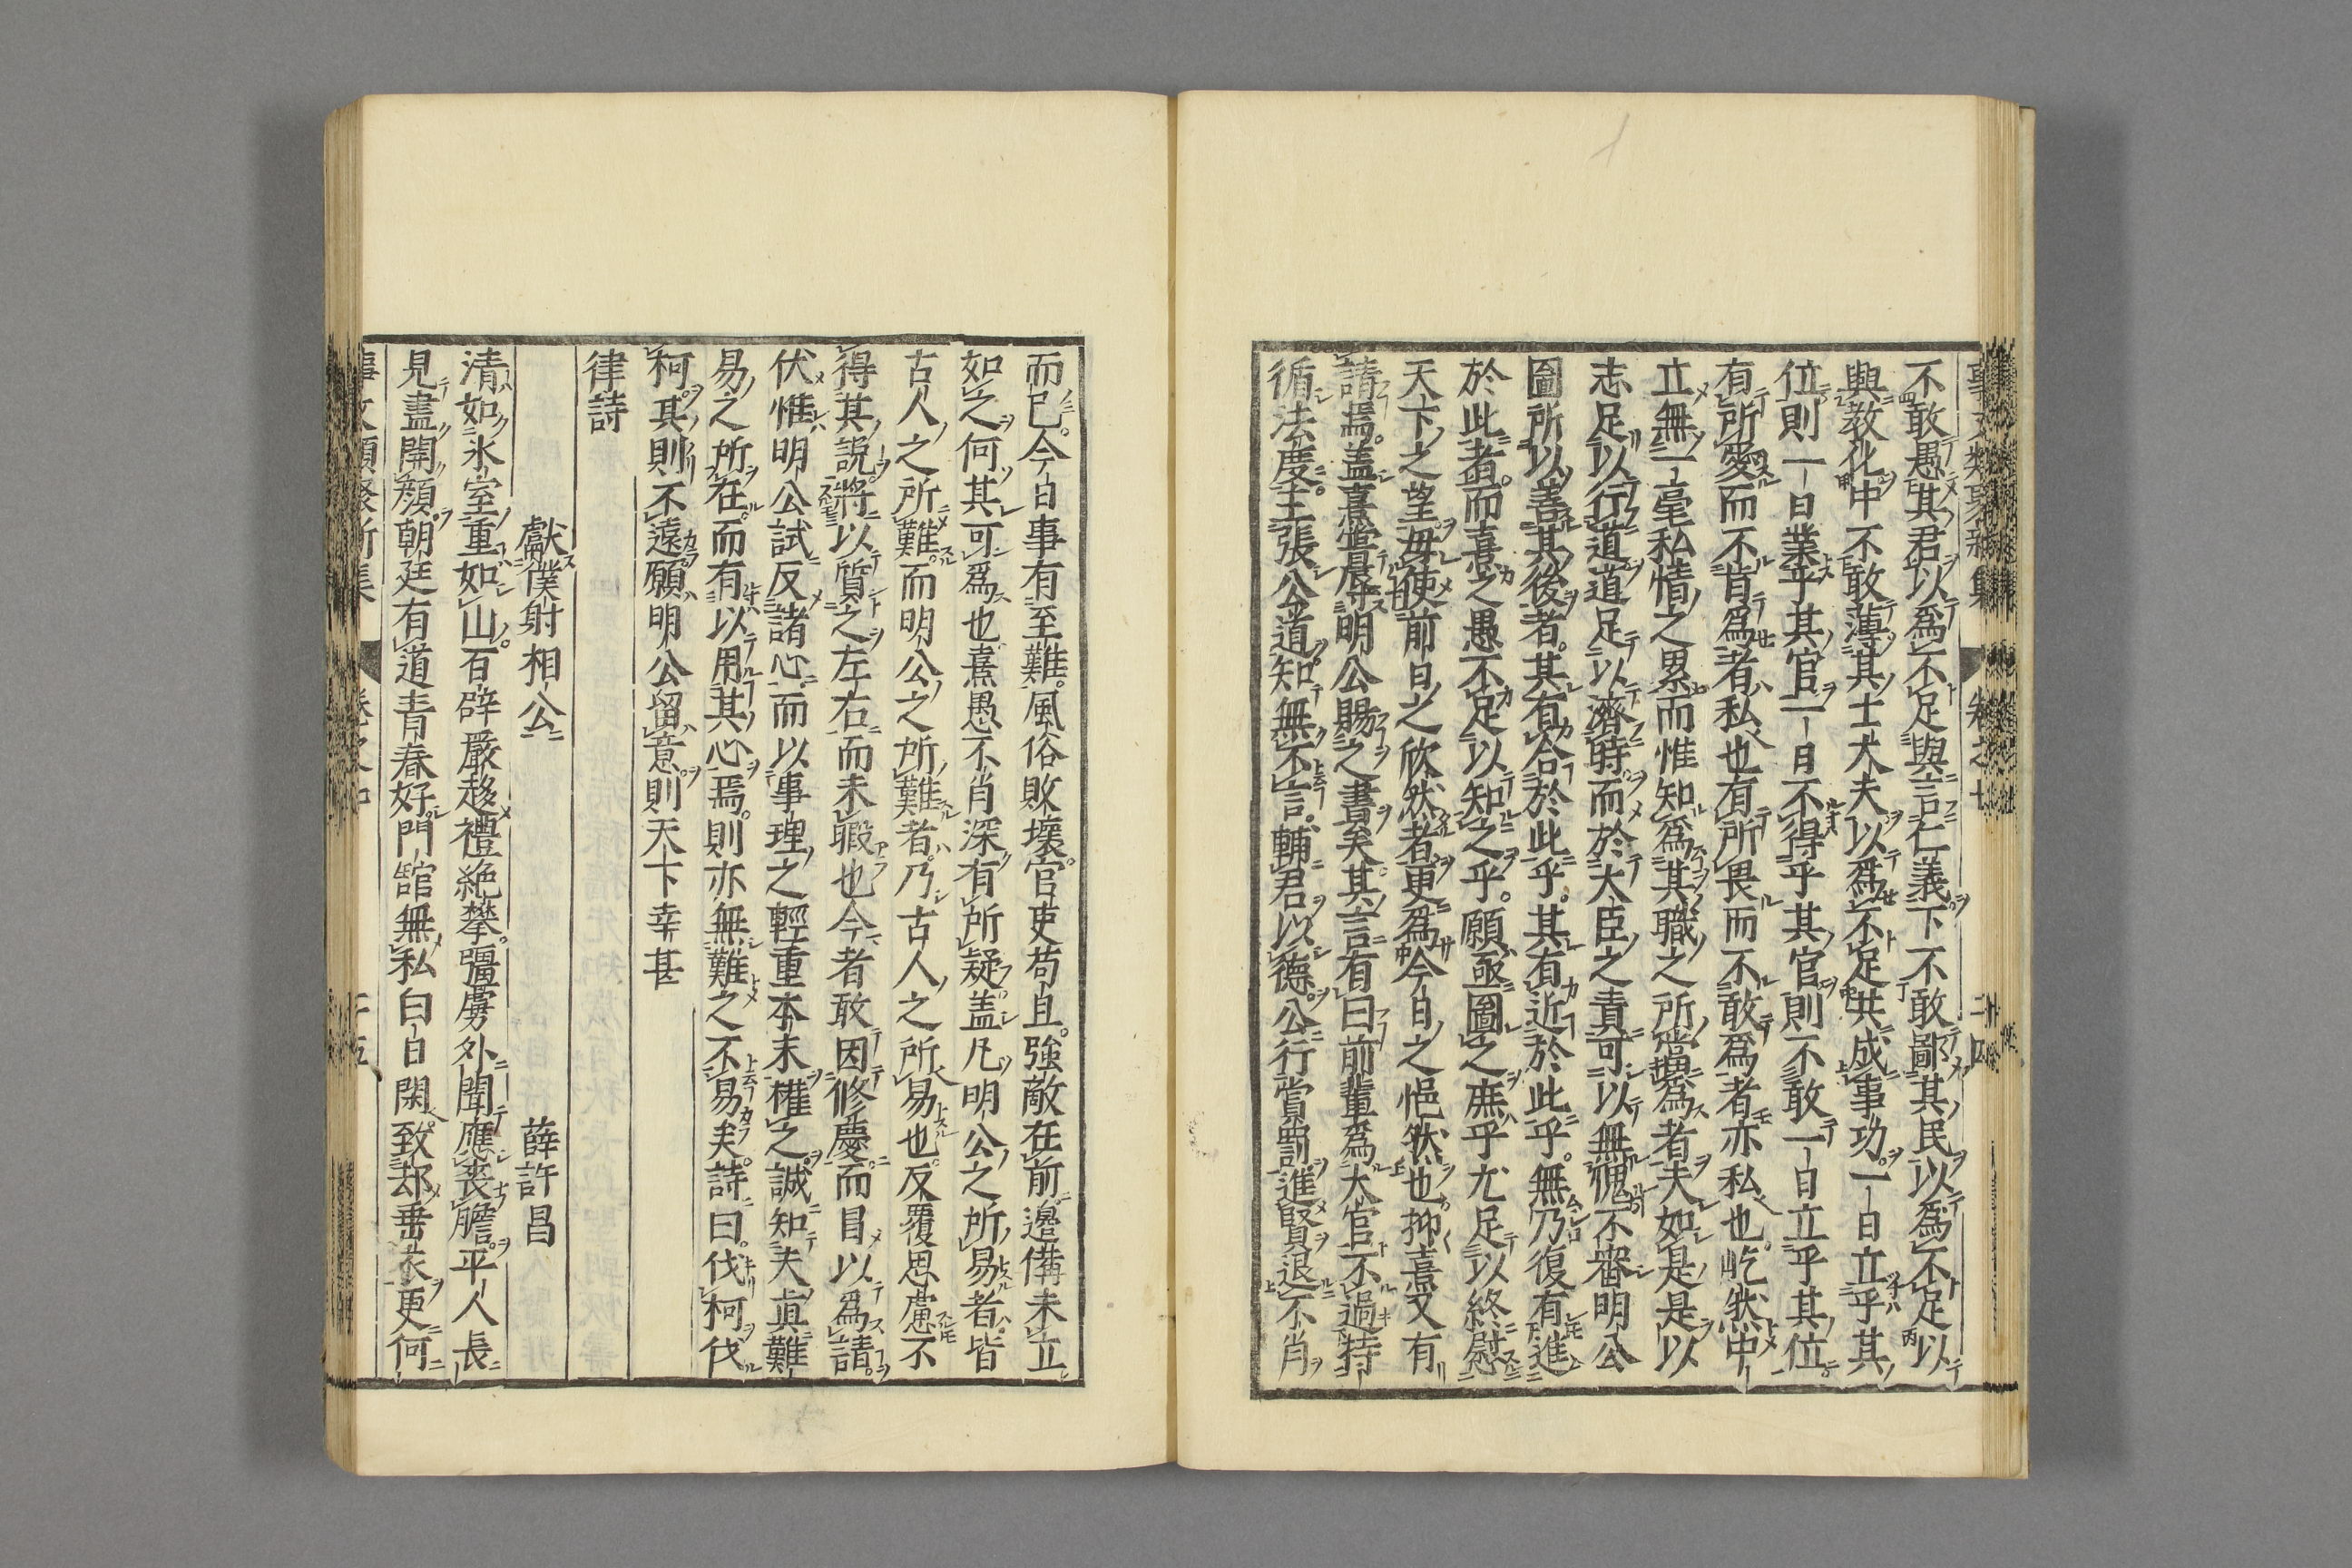 不敢愚其君以爲不足與言仁義下不敢鄙其民以爲不足以
興教化中不敢薄其士大夫以爲不足共成事功一日立乎其
位則一日業乎其官一日不得乎其官則不敢一日立乎其位
有所愛而不肯爲者私也有所畏而不敢爲者亦私也屹然中
立無一毫私情之累而惟知爲其職之所當爲者夫如是是以
志足以行道道足以濟時而於大臣之責可以無愧不審明公
圖所以善其後者其有合於此乎其有近於此乎無乃復有進
於此者而熹之愚不足以知之乎願亟圖之庶乎尤足以終慰
天下之望毋使前日之欣然者更爲今日之悒然也抑熹又有
請焉盖熹嘗辱明公賜之書矣其言有曰前輩爲大官不過持
循法度主張公道知無不言輔君以德公行賞罰進賢退不肖
而已今日事有至難風俗敗壞官吏苟且強敵在前邊備未立
如之何其可爲也熹愚不肖深有所疑盖凡明公之所易者皆
古人之所難而明公之所難者乃古人之所易也反覆思慮不
得其説將以質之左右而未暇也今者敢因修慶而目以爲請
伏惟明公試反諸心而以事理之輕重本末權之誠知夫眞難
易之所在而有以用其心焉則亦無難之不易矣詩曰伐柯伐
柯其則不遠願明公留意則天下幸甚
律詩
獻僕射相公　薛許昌
清如氷室重如山百辟嚴趍禮絶攀彊虜外聞應喪膽平人長
見盡開顏朝廷有道青春好門舘無私白日閑致却垂衣更何